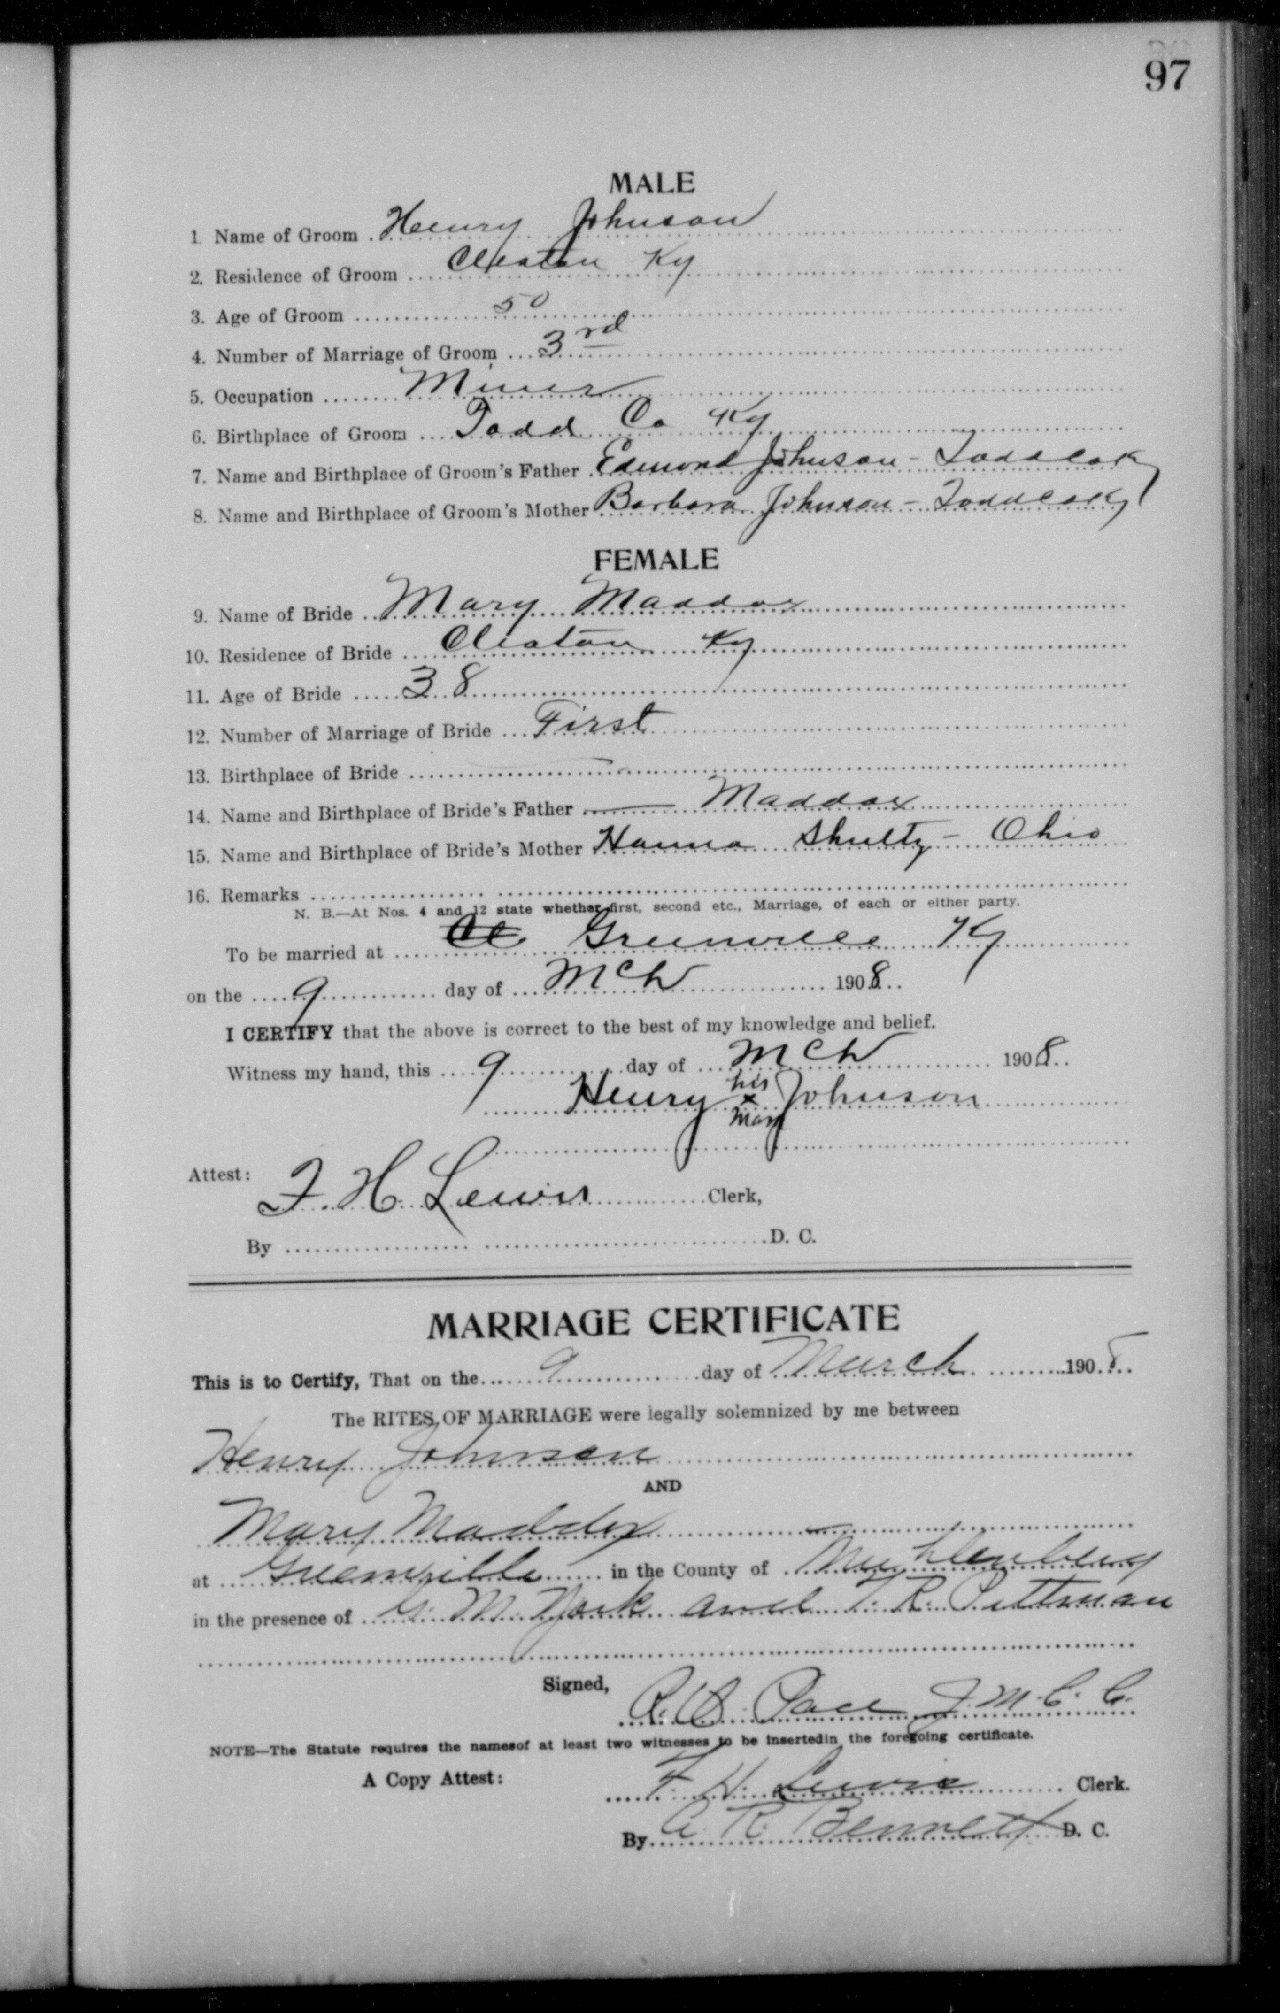 97
MALE
1. Name of Groom Henry Johnson
2. Residence of Groom Cleaton Ky
3. Age of Groom 50
4. Number of Marriage of Groom 3rd
5. Occupation Miner
6. Birthplace of Groom Todd Co Ky
7. Name and Birthplace of Groom's Father Edmond Johnson - Todd Co Ky
8. Name and Birthplace of Groom's Mother Barbara Johnson - Todd Co Ky
FEMALE
9. Name of Bride Mary Maddox
10. Residence of Bride Cleaton Ky
11. Age of Bride 38
12. Number of Marriage of Bride First
13. Birthplace of Bride
14. Name and Birthplace of Bride's Father — Maddox
15. Name and Birthplace of Bride's Mother Hanna Shultz - Ohio
16. Remarks
N. B.—At Nos. 4 and 12 state whether first, second etc., Marriage, of each or either party.
To be married at Cl Greenville Ky
on the 9 day of Mch 1908
I CERTIFY that the above is correct to the best of my knowledge and belief.
Witness my hand, this 9 day of Mch 1908
his
Henry x Johnson
mark
Attest: F. H. Lewis Clerk,
By D. C.
MARRIAGE CERTIFICATE
This is to Certify, That on the 9 day of March 1908
The RITES OF MARRIAGE were legally solemnized by me between
Henry Johnson
AND
Mary Maddox
at Greenville in the County of Muhlenberg
in the presence of G. M. York and T. R. Pittman
Signed, R. O. Pace J. M. C. C.
NOTE—The Statute requires the namesof at least two witnesses to be insertedin the foregoing certificate.
A Copy Attest: F. H. Lewis Clerk.
By A. R. Bennett D. C.